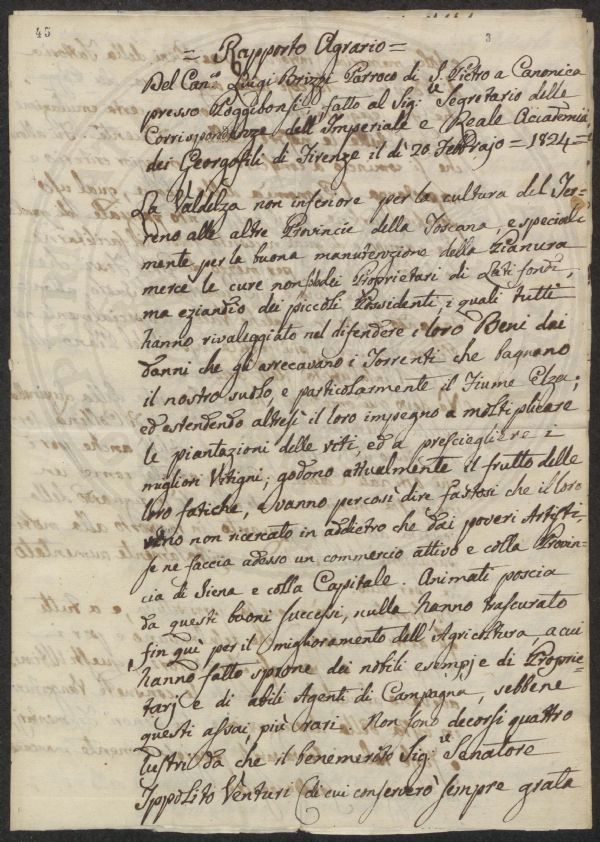 45
3
= Rapporto Agrario =
Del Can.º Luigi Brizzi Parroco di S. Pietro a Canonica
presso Poggibonsi fatto al Sig.re Segretario delle
Corrispondenze dell'Imperiale e Reale Accademia
dei Georgofili di Firenze il dì 20 Febbrajo = 1824 =
La Valdelza non inferiore per la cultura del Ter-
reno alle altre Provincie della Toscana, e special-
mente per la buona manutenzione della Pianura
mercè le cure non dei Proprietarj di Lati fondi,
ma eziandio dei piccoli Possidenti, i quali tutti
hanno rivaleggiato nel difendere i loro Beni dai
danni che gli arrecavano i Torrenti che bagnano
il nostro suolo, e particolarmente il Fiume Elza;
ed estendendo altresì il loro impegno a moltiplicare
le piantazioni delle viti, ed a prescieglière i
migliori Vitigni; godono attualmente il frutto delle
loro fatiche, e vanno per così dire fastosi che il loro
vino non ricercato in addietro che dai poveri Artisti,
se ne faccia adesso un commercio attivo e colla Provin-
cia di Siena e colla Capitale. Animati poscia
da questi buoni successi, nulla hanno trascurato
fin quì per il miglioramento dell'Agricoltura, a cui
hanno fatto sprone dei nobili esempj e di Proprie-
tarj e di abili Agenti di Campagna, sebbene
questi assai più rari. Non sono decorsi quattro
lustri da che il benemerito Sig.re Senatore
Ippolito Venturi (di cui conserverò sempre grata